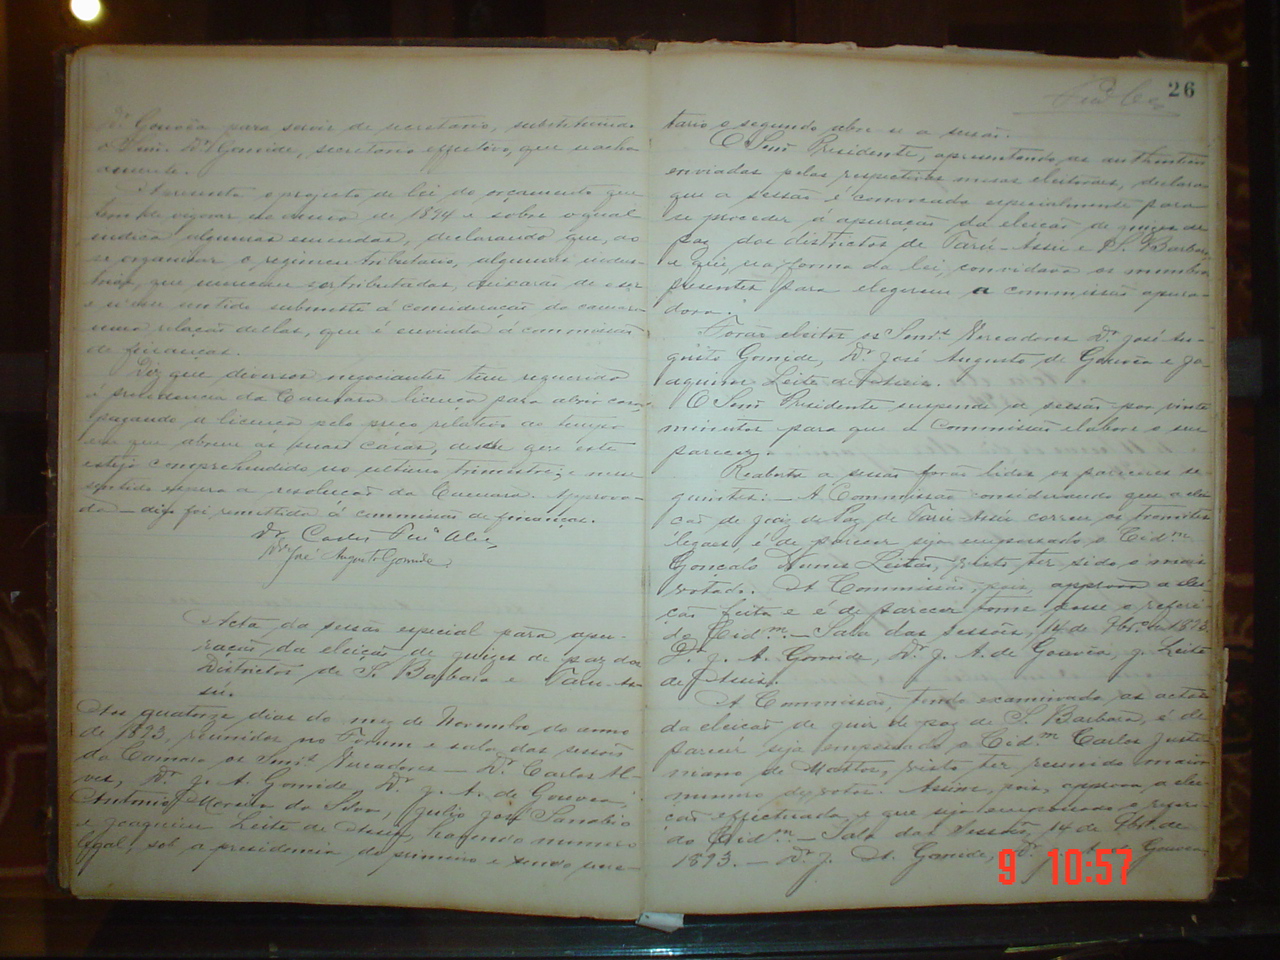 Dr. Gouvêa para servir de secretario, substituindo
o Snr. Dr. Gomide, secretario effectivo, que se acha
ausente.
Apresenta o projecto de lei do orçamento que
tem de vigorar no anno de 1894 e sobre o qual
indica algumas emendas, declarando que, ao
se organisar o regimen tributario, algumas indus-
trias, que deixarão de ser
e n'esse sentido submette á consideração da camara
uma relação dellas, que é enviada á commissão
de finanças.
Diz que diversos negociantes têm requerido
á presidencia da Camara licença para abrir casas,
pagando a licença pelo preço relativo ao tempo
em que abrem as suas casas, desde que este
esteja comprehendido no ultimo trimestre; e nesse
sentido espera a resolução da Camara. Approva-
do — digo foi remettida á commissão de finanças.
Dr. Carlos
Dr. José Augusto Gomide
Acta da sessão especial para apu-
ração da eleição de juizes de paz dos
Districtos de S. Barbara e Tarú-As-
sú.
Aos quatorze dias do mez de Novembro do anno
de 1893, reunidos no Forum e sala das sessões
da Camara os Snrs. Vereadores — Dr. Carlos Al-
ves, Dr. J. A. Gomide, Dr. J. A. de Gouvêa,
Antonio Moreira da Silva, Julio José Sanabio
e Joaquim Leite de Assis, havendo numero
legal, sob a presidencia do primeiro e sendo secre-
26
tario o segundo abre-se a sessão.
O Snr. Presidente, apresentando as authenticas
enviadas pelas respectivas mesas eleitoraes, declara
que a sessão é convocada especialmente para
se proceder á apuração da eleição de juizes de
paz dos districtos de Tarú-Assú e S. Barbara,
e que, na forma da lei, convidava os membros
presentes para elegerem a commissão apura-
dora.
Forão eleitos os Snrs. Vereadores Dr. José Au-
gusto Gomide, Dr. José Augusto de Gouvêa e Jo-
aquim Leite de Assis.
O Snr. Presidente suspende a sessão por vinte
minutos para que a Commissão elabore o seu
parecer.
Reaberta a sessão forão lidos os pareceres se-
guintes: — A Commissão considerando que a elei-
ção de juiz de Paz de Tarú-Assú correu os tramites
legaes, é de parecer seja empossado o Cidm.
Gonçalo Nunes Leitão, visto ter sido o mais
votado. A Commissão, pois, approva a elei-
ção feita e é de parecer tome posse o referi-
do Cidm. — Sala das sessões, 14 de 9bro. de 1893.
Dr. J. A. Gomide, Dr. J. A. de Gouvêa, J. Leite
de Assis.
A Commissão, tendo examinado as actas
da eleição de juiz de paz de S. Barbara, é de
parecer seja empossado o Cidm. Carlos Justi-
niano de Mattos, visto ter reunido maior
numero de votos. Assim, pois, approva a elei-
ção effectuada e que seja empossado o referi-
do Cidm. — Sala das Sessões, 14 de 9bro. de
1893. — Dr. J. A. Gomide, Dr. J. A. de Gouvêa
9 10:57